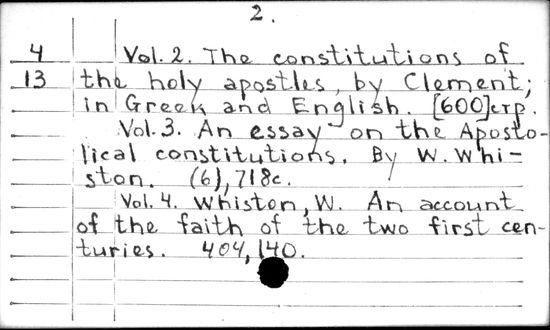 2.
4 Vol. 2. The constitutions of
13 the holy apostles, by Clement;
in Greek and English. [600]стр.
Vol. 3. An essay on the Aposto-
lical constitutions. By W. Whi-
ston. (6), 718c.
Vol. 4. Whiston, W. An account
of the faith of the two first cen-
turies. 404, 140.